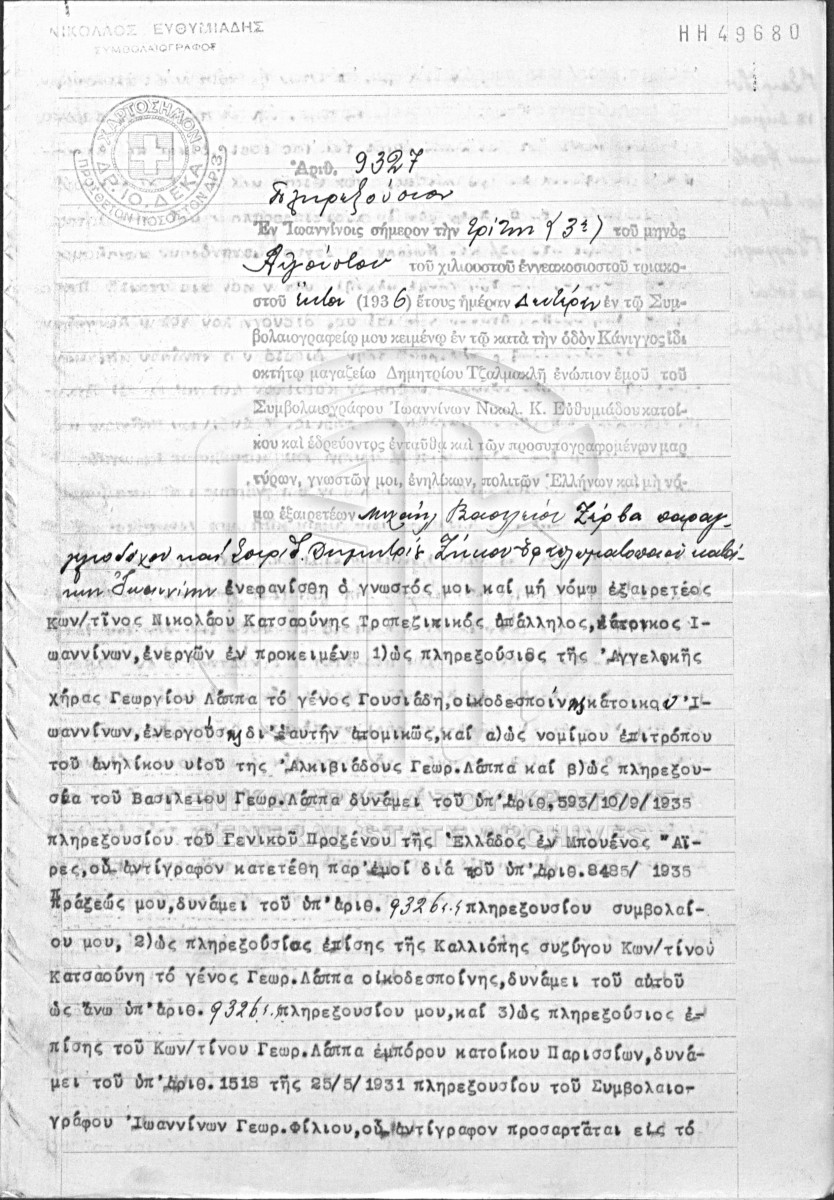 ΝΙΚΟΛΑΟΣ ΕΥΘΥΜΙΑΔΗΣ
ΣΥΜΒΟΛΑΙΟΓΡΑΦΟΣ
ΗΗ49680
ΧΑΡΤΟΣΗΜΟΝ
ΔΡ 10. ΔΕΚΑ
ΠΡΟΣΘΕΤΟΝ ΠΟΣΟΣΤΟΝ ΔΡ 3
Ἀριθ. 9327
Πληρεξούσιον
Ἐν Ἰωαννίνοις σήμερον τὴν τρίτην (3ην) τοῦ μηνὸς
Αὐγούστου τοῦ χιλιοστοῦ ἐννεακοσιοστοῦ τριακο-
στοῦ ἕκτου (1936) ἔτους ἡμέραν Δευτέραν ἐν τῷ Συμ-
βολαιογραφείῳ μου κειμένῳ ἐν τῷ κατὰ τὴν ὁδὸν Κάνιγγος ἰδι
οκτήτῳ μαγαζείῳ Δημητρίου Τζαλμακλῆ ἐνώπιον ἐμοῦ τοῦ
Συμβολαιογράφου Ἰωαννίνων Νικολ. Κ. Εὐθυμιάδου κατοί-
κου καὶ ἑδρεύοντος ἐνταῦθα καὶ τῶν προσυπογραφομένων μαρ
τύρων, γνωστῶν μοι, ἐνηλίκων, πολιτῶν Ἑλλήνων καὶ μὴ νό-
μῳ ἐξαιρετέων Μιχαὴλ Βασιλείου Ζέρβα παραγ-
γελιοδόχου καὶ Σπυρίδ. Δημητρίου Ζήκου κατοί-
κων Ἰωαννίνων ἐνεφανίσθη ὁ γνωστός μοι καί μή νόμῳ ἐξαιρετέος
Κων/τῖνος Νικολάου Κατσαούνης Τραπεζιτικός ὑπάλληλος,κάτοικος Ἰ-
ωαννίνων,ἐνεργῶν ἐν προκειμένῳ 1)ὡς πληρεξούσιος τῆς Ἀγγελικῆς
χήρας Γεωργίου Λάππα τό γένος Γουσιάδη,οἰκοδεσποίνης κατοίκου Ἰ-
ωαννίνων,ἐνεργούσης δι' ἑαυτήν ἀτομικῶς,καί α)ὡς νομίμου ἐπιτρόπου
τοῦ ἀνηλίκου υἱοῦ της Ἀλκιβιάδους Γεωρ.Λάππα καί β)ὡς πληρεξου-
σία τοῦ Βασιλείου Γεωρ.Λάππα δυνάμει τοῦ ὑπ' ἀριθ,593/10/9/1935
πληρεξουσίου τοῦ Γενικοῦ Προξένου τῆς Ἑλλάδος ἐν Μπουένος Ἄϊ-
ρες,οὗ ἀντίγραφον κατετέθη παρ' ἐμοί διά τοῦ ὑπ' ἀριθ.8485/ 1935
πράξεώς μου,δυνάμει τοῦ ὑπ' ἀριθ. 9326 πληρεξουσίου συμβολαί-
ου μου, 2)ὡς πληρεξούσιος ἐπίσης τῆς Καλλιόπης συζύγου Κων/τίνου
Κατσαούνη τό γένος Γεωρ.Λάππα οἰκοδεσποίνης,δυνάμει τοῦ αὐτοῦ
ὡς ἄνω ὑπ' ἀριθ. 9326 πληρεξουσίου μου,καί 3)ὡς πληρεξούσιος ἐ-
πίσης τοῦ Κων/τίνου Γεωρ.Λάππα ἐμπόρου κατοίκου Παρισσίων,δυνά-
μει τοῦ ὑπ' ἀριθ. 1518 τῆς 25/5/1931 πληρεξουσίου τοῦ Συμβολαιο-
γράφου Ἰωαννίνων Γεωρ.Φίλιου,οὗ ἀντίγραφον προσαρτᾶται εἰς τό